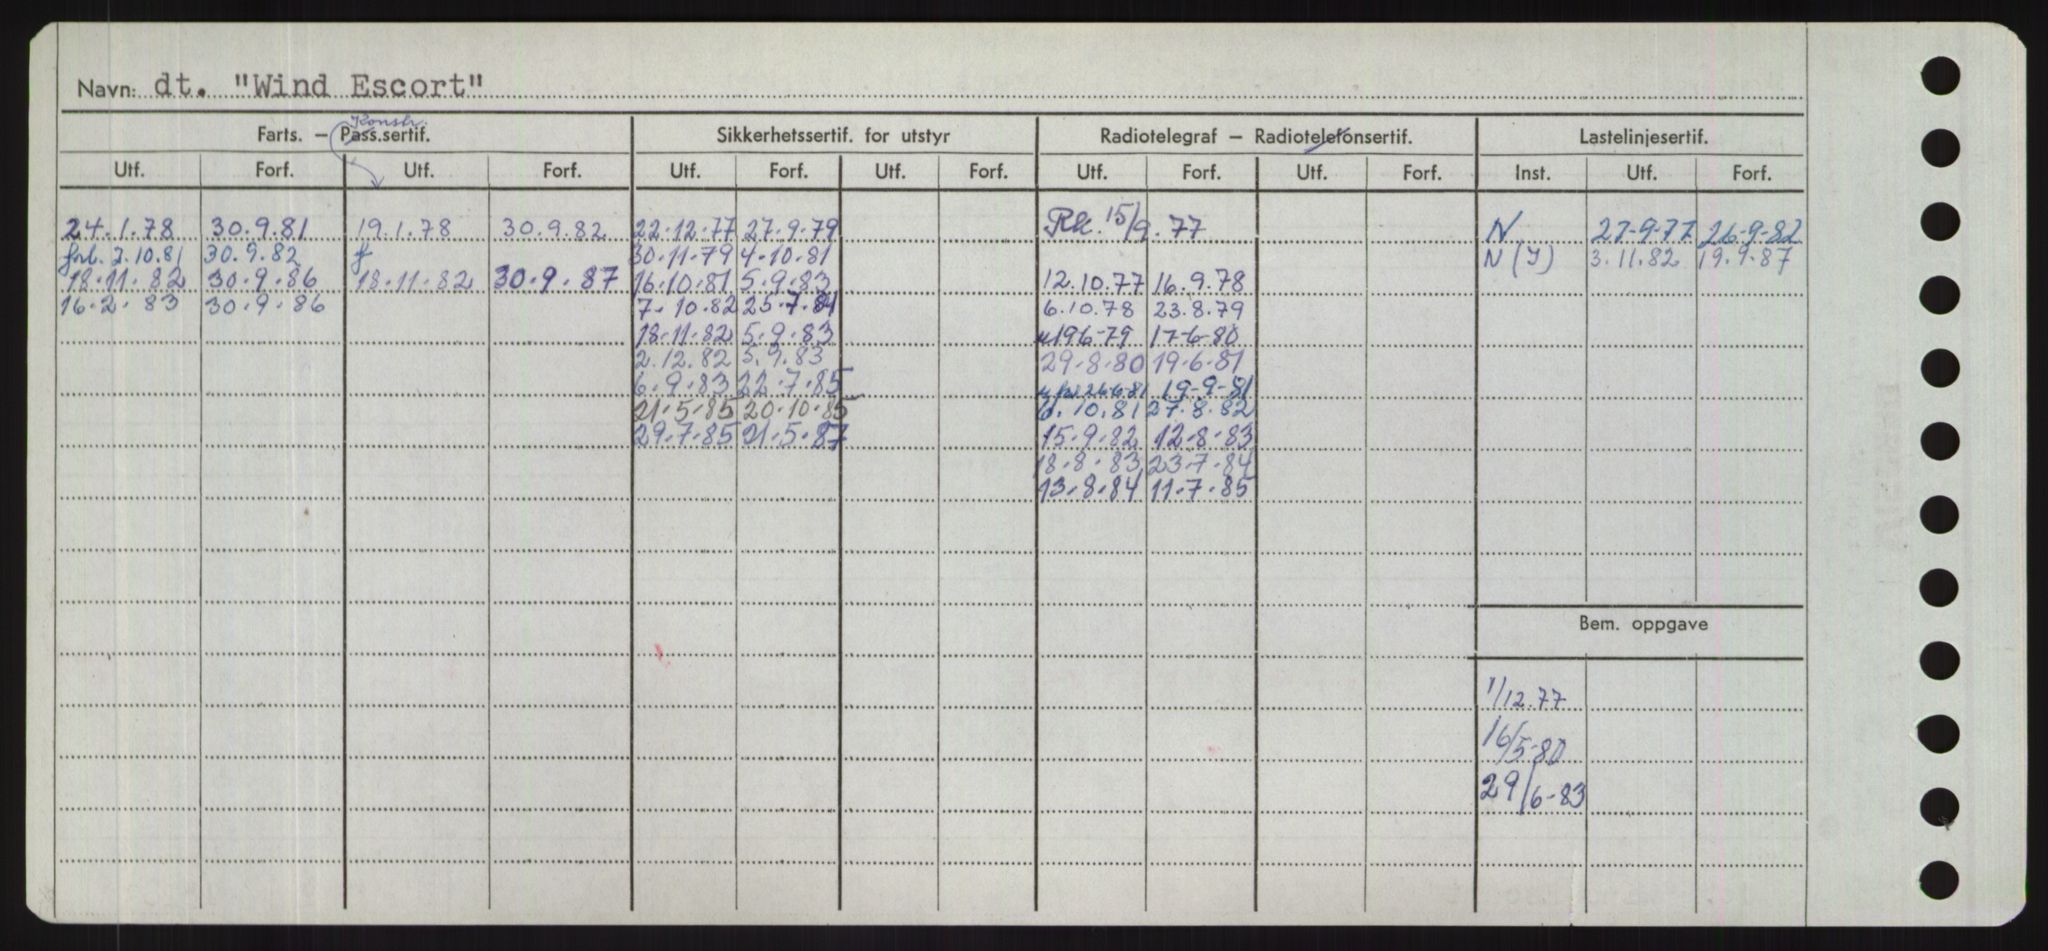 Navn: dt. "Wind Escort"
Konstr.
Farts. – Pass.sertif. Sikkerhetssertif. for utstyr Radiotelegraf – Radiotelefonsertif. Lastelinjesertif.
Utf. Forf. Utf. Forf. Utf. Forf. Utf. Forf. Utf. Forf. Utf. Forf. Inst. Utf. Forf.
24.1.78 30.9.81 19.1.78 30.9.82 22.12.77 27.9.79 15/9.77 N 27-9-77 26-9-82
forl. 2.10.81 30.9.82 30.11.79 4.10.81 N (I) 3.11.82 19.9.87
18.11.82 30.9.86 18.11.82 30.9.87 16.10.81 5.9.83 12.10.77 16.9.78
16.2.83 30.9.86 7.10.82 25.7.84 6.10.78 23.8.79
18.11.82 5.9.83 196-79 17-6-80
2.12.82 5.9.83 29-8-80 19-6-81
6.9.83 22.7.85 26-6-81 19-9-81
21.5.85 20.10.85 6.10.81 27.8.82
29.7.85 21.5.87 15.9.82 12.8.83
18.8.83 23.7.84
13.8.84 11.7.85
Bem. oppgave
1/12.77
16/5-80
29/6-83